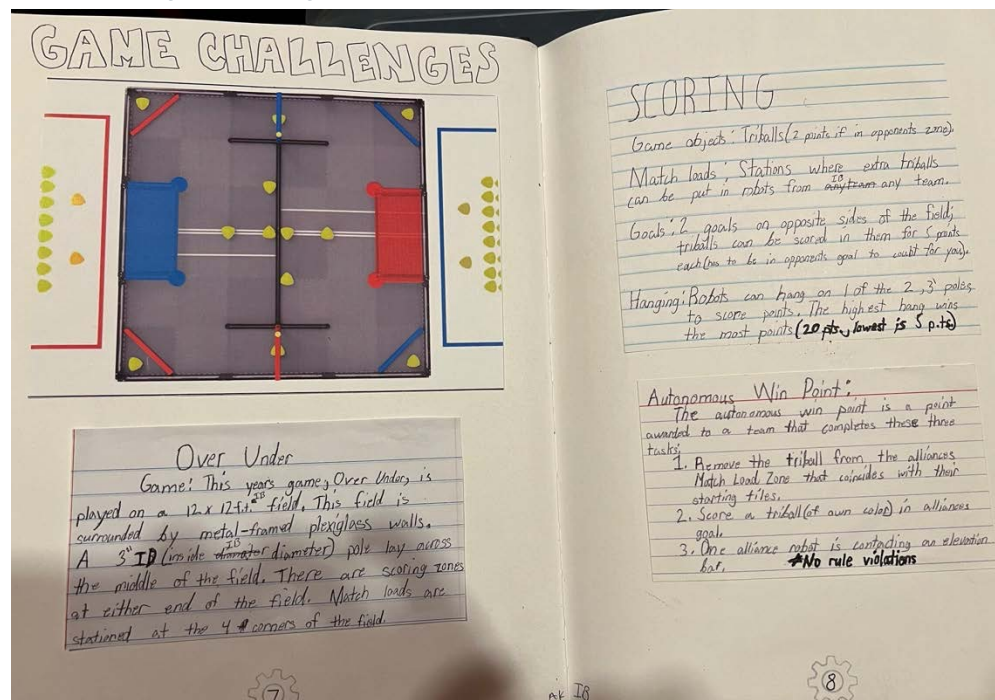 GAME CHALLENGES
Over Under
Game: This years game, Over Under, is
played on a 12 x 12 ft.² IB field. This field is
surrounded by metal-framed plexiglass walls.
A 3" ID (inside IB diameter) pole lay across
the middle of the field. There are scoring zones
at either end of the field. Match loads are
stationed at the 4 corners of the field.
7
SCORING
Game objects: Triballs (2 points if in opponents zone).
Match loads: Stations where extra triballs
can be put in robots from IB any team any team.
Goals: 2 goals on opposite sides of the field;
triballs can be scored in them for 5 points
each (has to be in opponents goal to count for you).
Hanging: Robots can hang on 1 of the 2, 3' poles,
to score points. The highest hang wins
the most points (20 pts., lowest is 5 p.ts)
Autonomous Win Point:
The autonomous win point is a point
awarded to a team that completes these three
tasks:
1. Remove the triball from the alliances
Match Load Zone that coincides with their
starting tiles.
2. Score a triball (of own color) in alliances
goal.
3. One alliance robot is contacting an elevation
bar. *No rule violations
AK IB
8